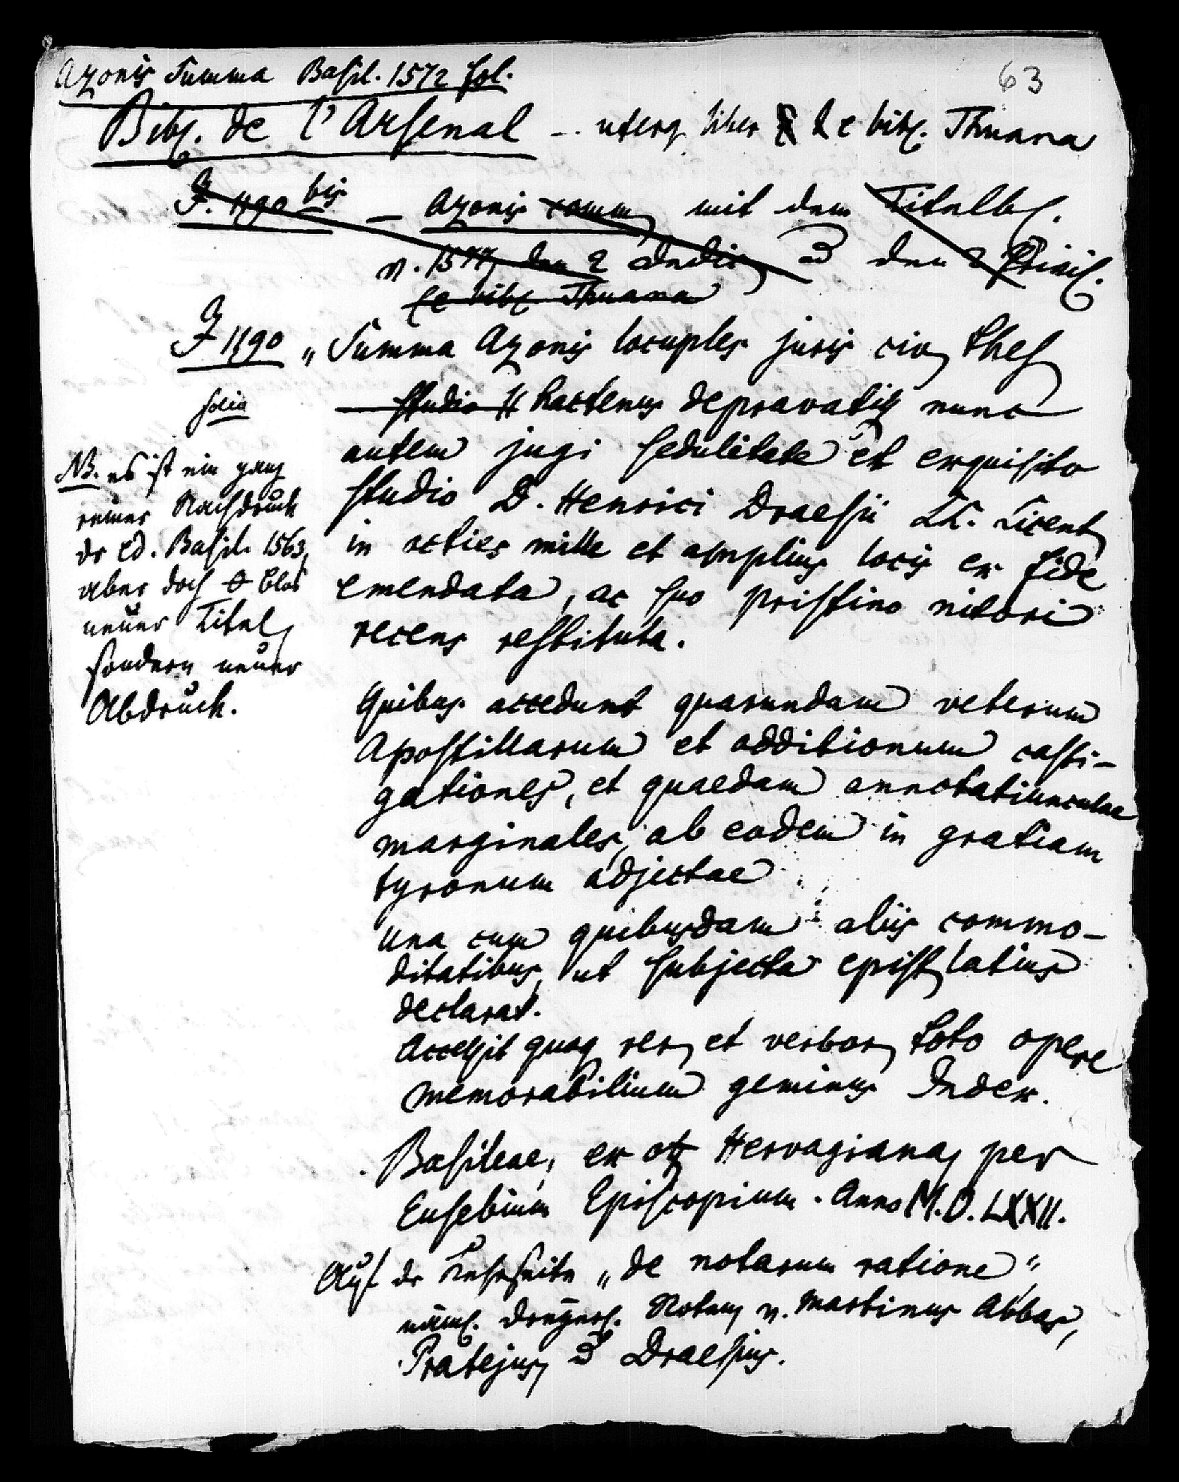 Azonis Summa Basil. 1572 fol.
63
Bibl. de l'Arsenal -- uterq liber ex bibl. Thuana
J. 1190 bis – Azonis comm mit dem Titelbl.
v. 1577 den 2 Indic den 2 Privil.
ex bibl. Thuana
J 1190 „Summa Azonis locuples juris civ thes
folia
studio hactenus depravatis nunc
autem jugi sedulitate et exquisito
studio D. Henrici Draesii LL. Licent
in octies mille et amplius locis ex fide
emendata, ac suo pristino nitori
recens restituta.
NB. es ist ein ganz
reiner Nachdruck
dr ed. Basil. 1563,
aber doch blos
neuer Titel,
sondern neuer
Abdruck.
Quibus accedunt quarundam veterum
Apostillarum et additionum casti-
gationes, et quaedam annotatiunculae
marginales, ab eodem in gratiam
tyronum adjectae
una cum quibusdam aliis commo-
ditatibus, ut subjecta epist latius
declarat.
Accessit quoq rer et verbor toto opere
memorabilium geminus Index.
Basileae, ex off Hervagiana, per
Eusebium Episcopium. Anno M.D.LXXII.
Auf dr Kehrseite „de notarum ratione“,
näml. dreyerl. Noten v. Martinus Abbas,
Pratejus, Draesius.